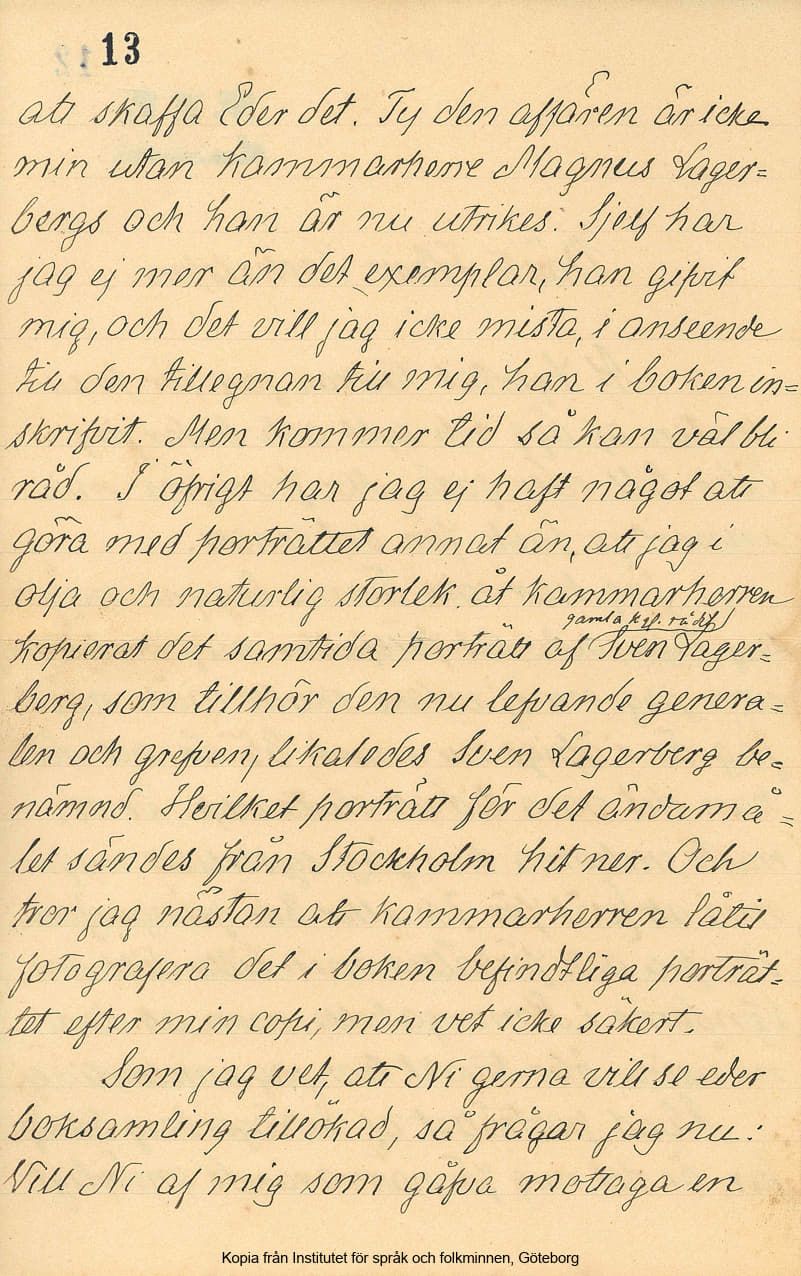 13
att skaffa Eder det. Ty den affären är icke
min utan kammarherre Magnus Lager=
bergs och han är nu utrikes. Sjelf har
jag ej mer än det exemplar, han gifvit
mig, och det vill jag icke mista, i anseende
till den tillegnan till mig, han i boken in=
skrifvit. Men kommer tid så kan väl bli
råd. I öfrigt har jag ej haft något att
göra med porträttet annat än, att jag i
olja och naturlig storlek åt kammarherren
gamla kgl. rådet
kopierat det samtida porträtt af Sven Lager=
berg, som tillhör den nu lefvande genera=
len och grefven, likaledes Sven Lagerberg be=
nämnd. Hvilket porträtt för det ändamå=
let sändes från Stockholm hit ner. Och
tror jag nästan att kammarherren låtit
fotografera det i boken befindtliga porträt=
tet efter min copi, men vet icke säkert.
Som jag vet, att Ni gerna vill se eder
boksamling tillökad, så frågar jag nu:
Vill Ni af mig som gåfva mottaga en
Kopia från Institutet för språk och folkminnen, Göteborg